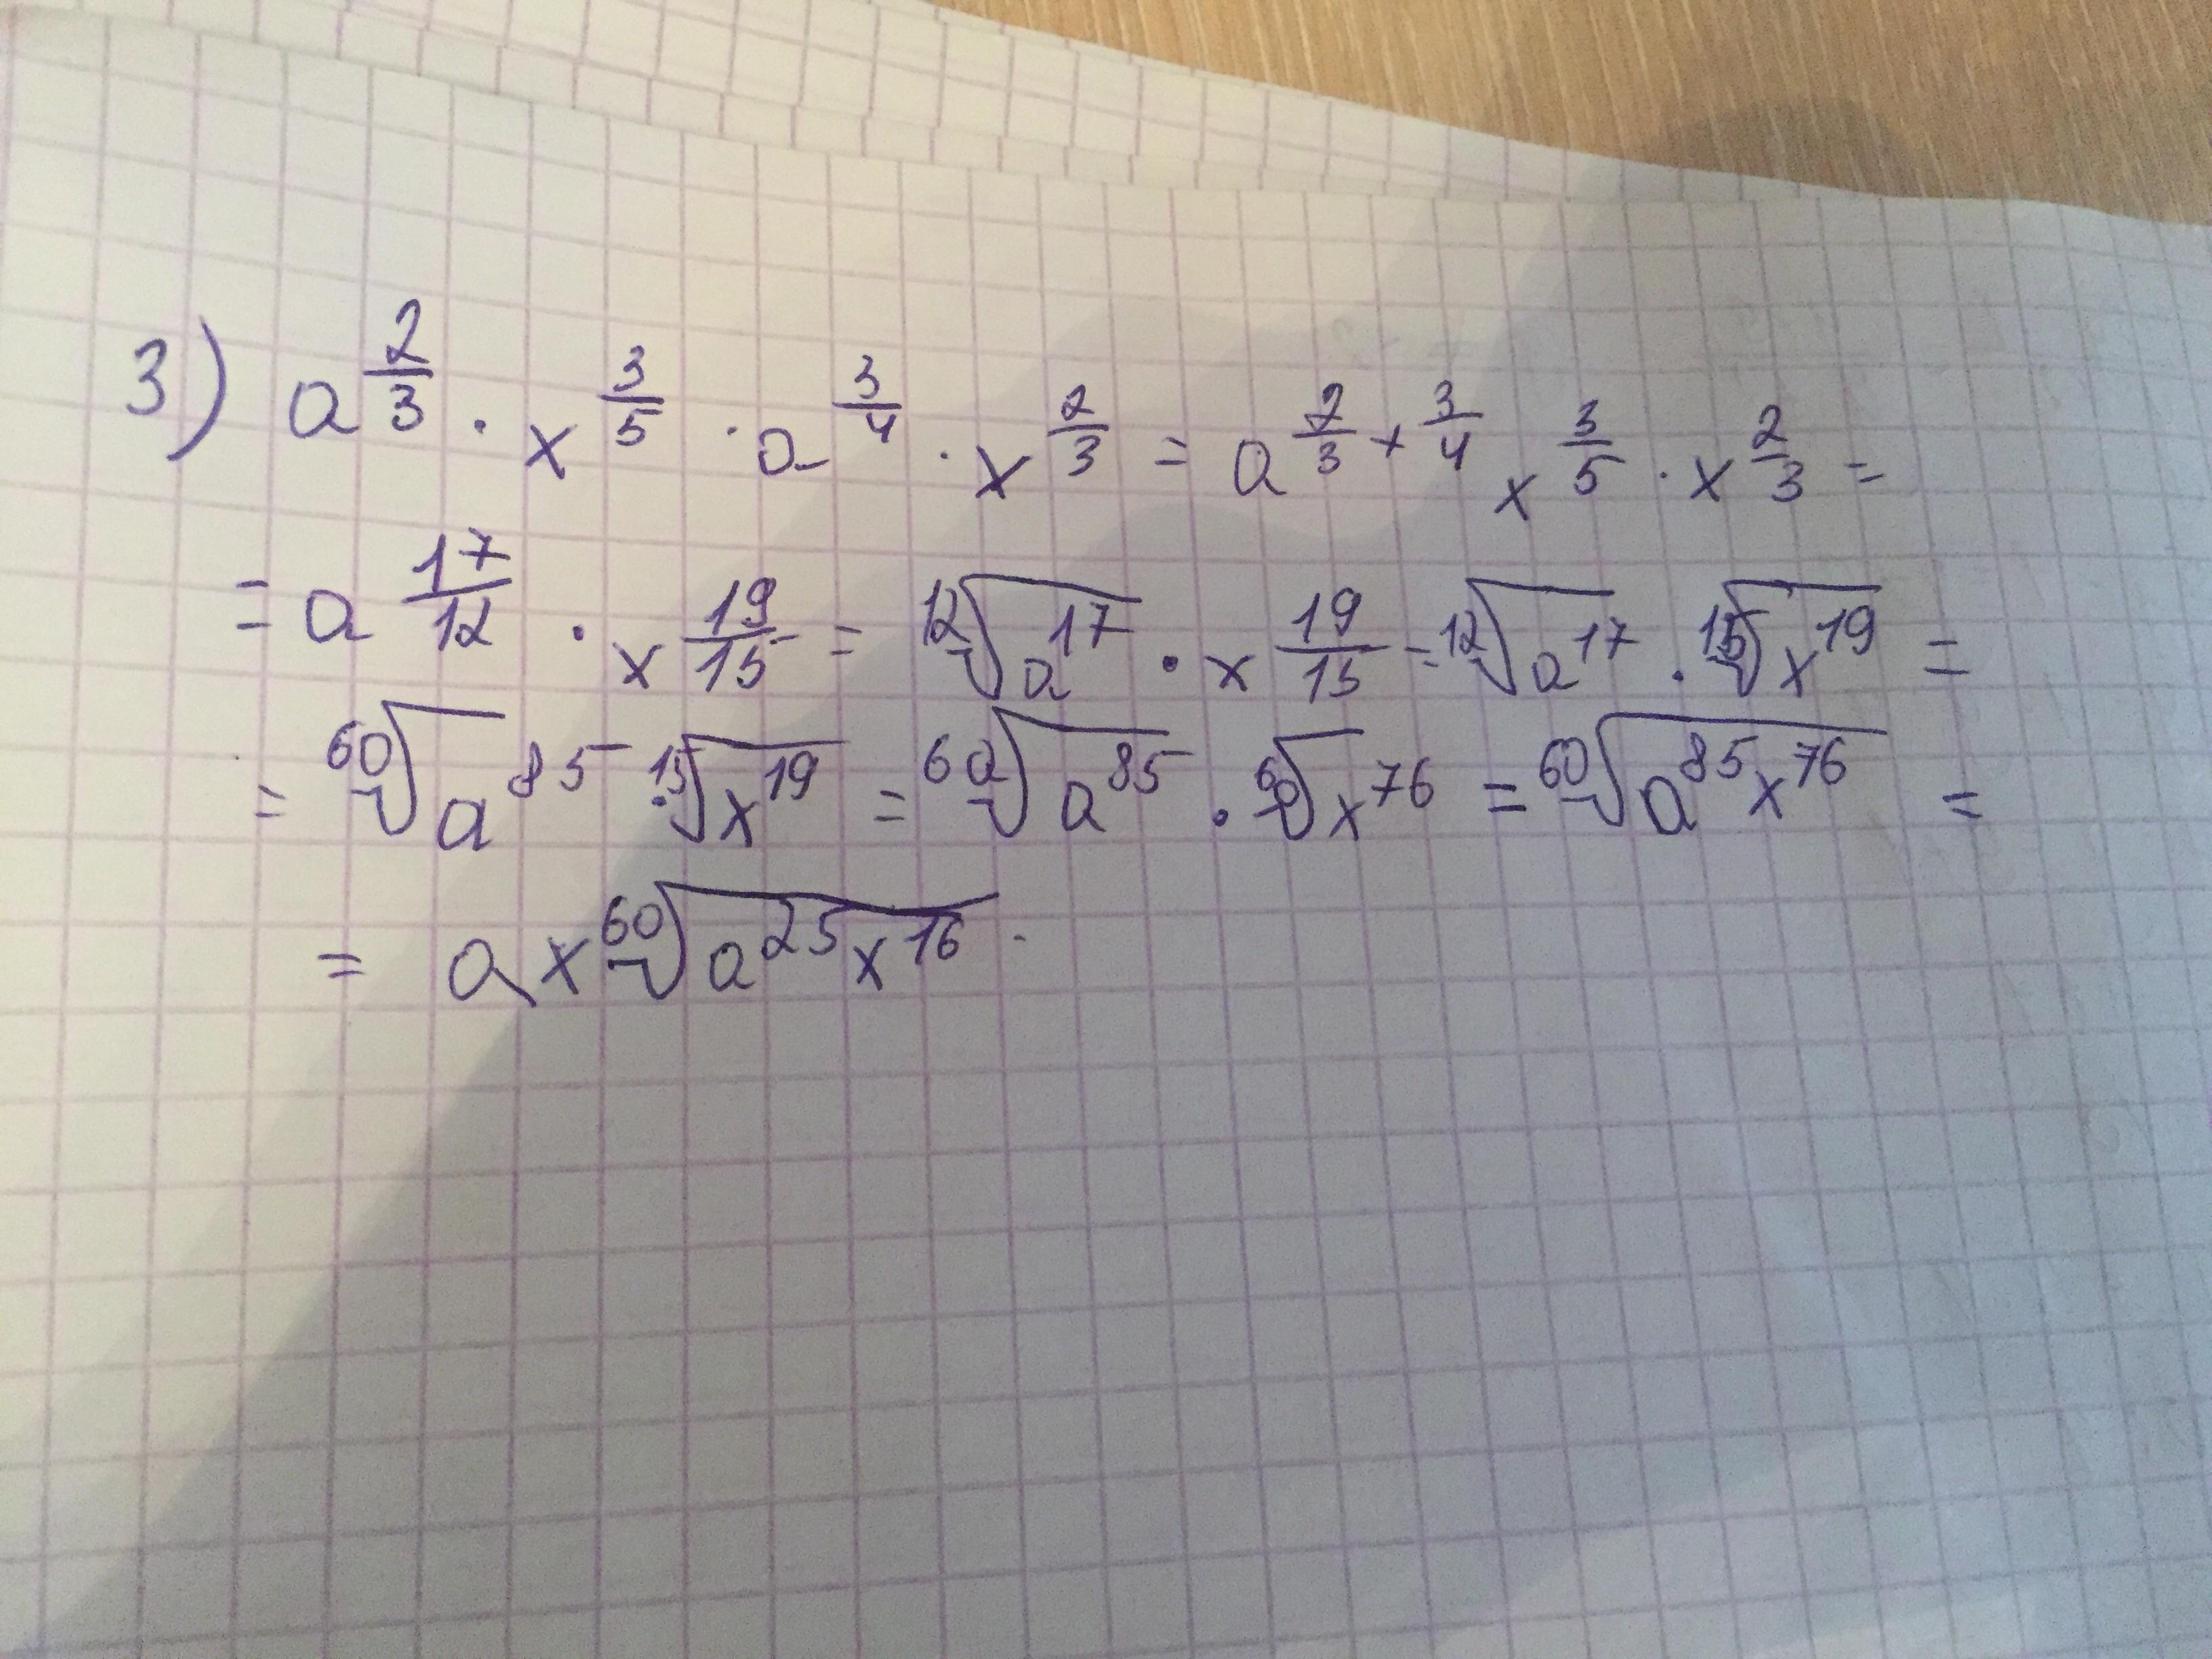 3) a^{2/3} · x^{3/5} · a^{3/4} · x^{2/3} = a^{2/3 + 3/4} x^{3/5} · x^{2/3} =
= a^{17/12} · x^{19/15} = \sqrt[12]{a^{17}} · x^{19/15} = \sqrt[12]{a^{17}} · \sqrt[15]{x^{19}} =
= \sqrt[60]{a^{85}} · \sqrt[15]{x^{19}} = \sqrt[60]{a^{85}} · \sqrt[60]{x^{76}} = \sqrt[60]{a^{85}x^{76}} =
= ax\sqrt[60]{a^{25}x^{16}}.